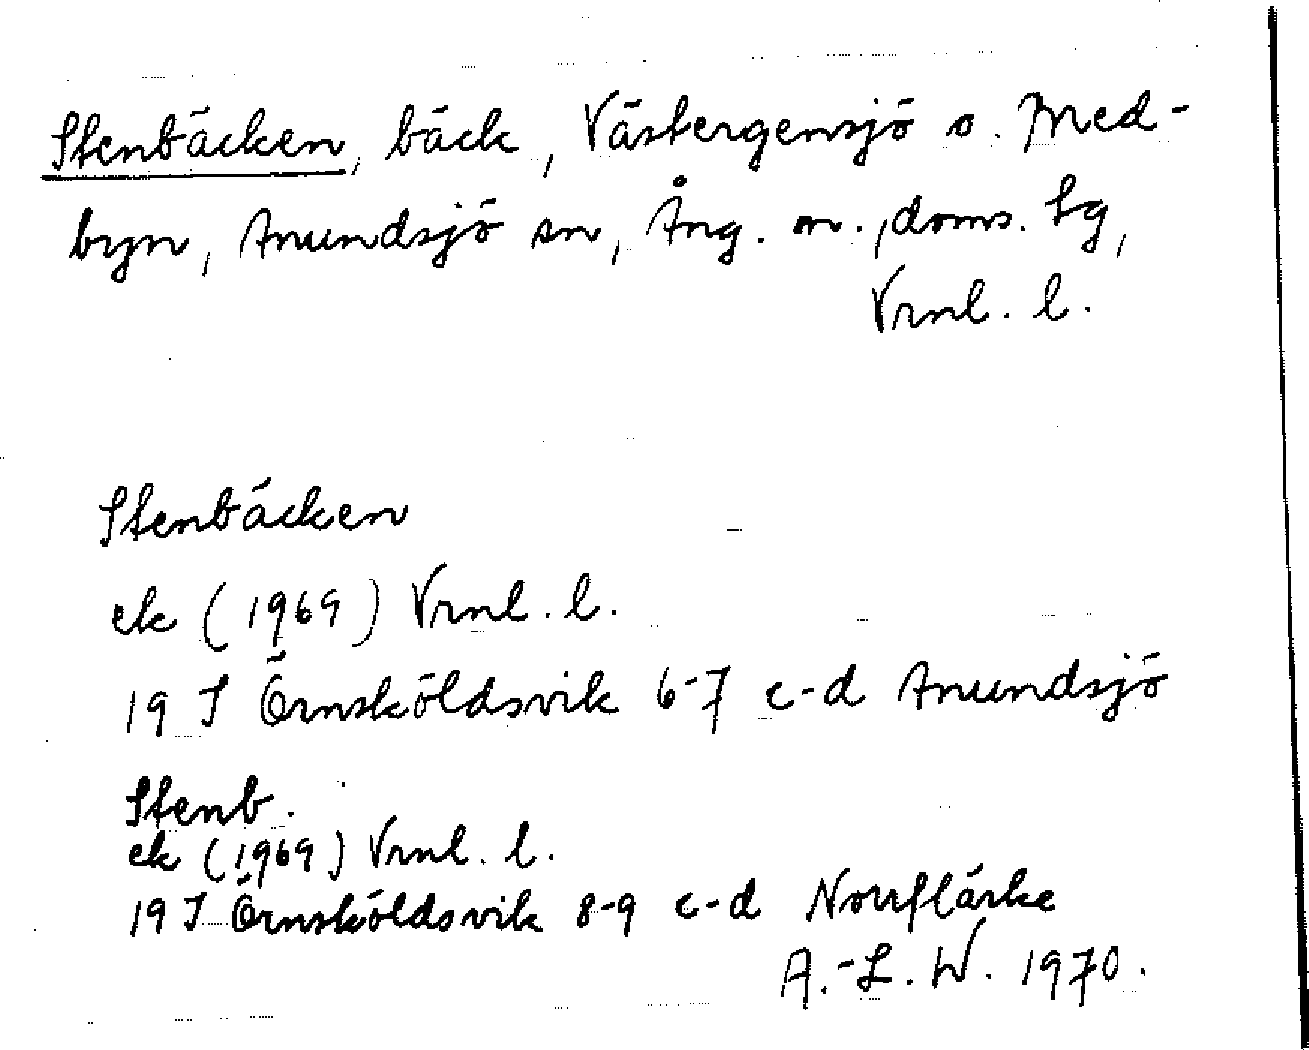 Stenbäcken, bäck, Västergensjö o. Med-
byn, Anundsjö sn, Ång. m., doms. lg,
Vrnl. l.
Stenbäcken
ek (1969) Vrnl. l.
19 J Örnsköldsvik 6-7 c-d Anundsjö
Stenb.
ek (1969) Vrnl. l.
19 J Örnsköldsvik 8-9 c-d Norrflärke
A.-L. W. 1970.